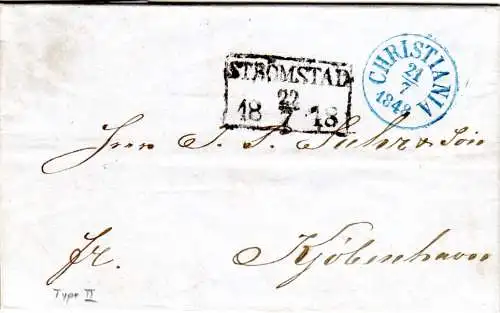 STRÖMSTAD
22
18 7 48
CHRISTIANIA
21
7
1848
Herrn J. P. Suhr & Sön
fr. Kjöbenhavn
Type II